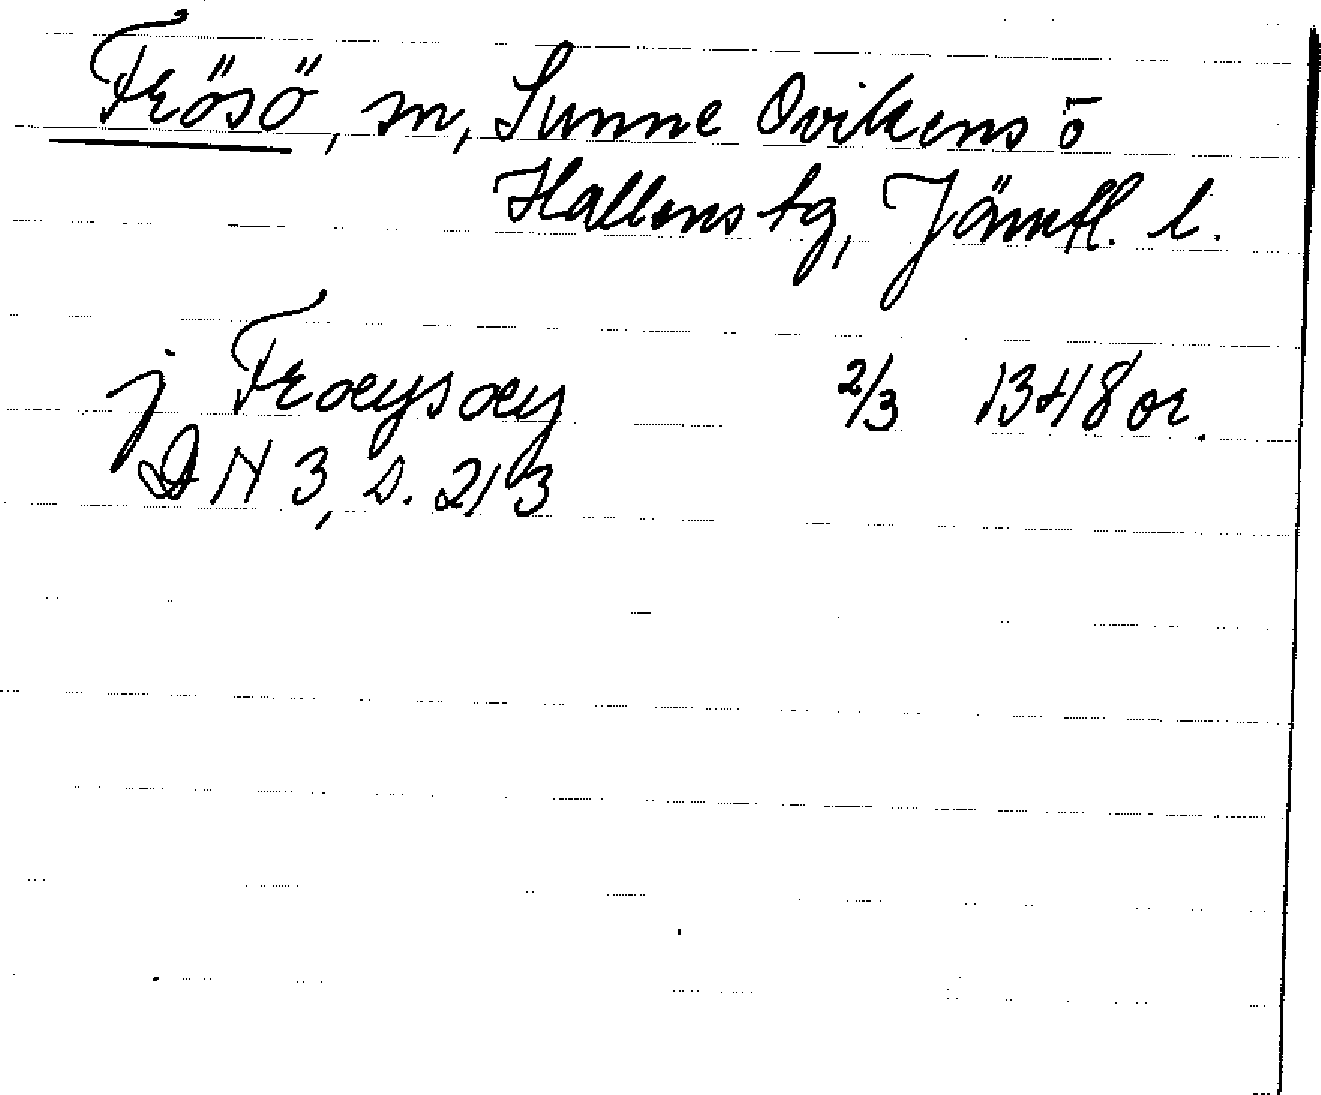 Frösö, sn, Sunne Ovikens o
Hallens tg, Jämtl. l.
j Frœysœy 2/3 1348 or.
DN 3, s. 213